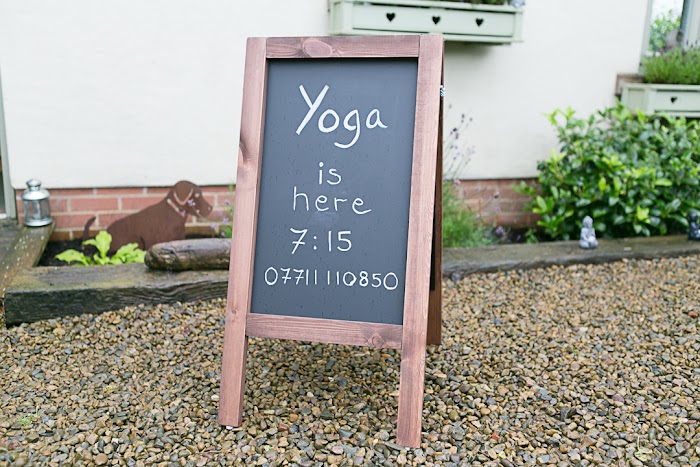 Yoga
is
here
7:15
07711 110850